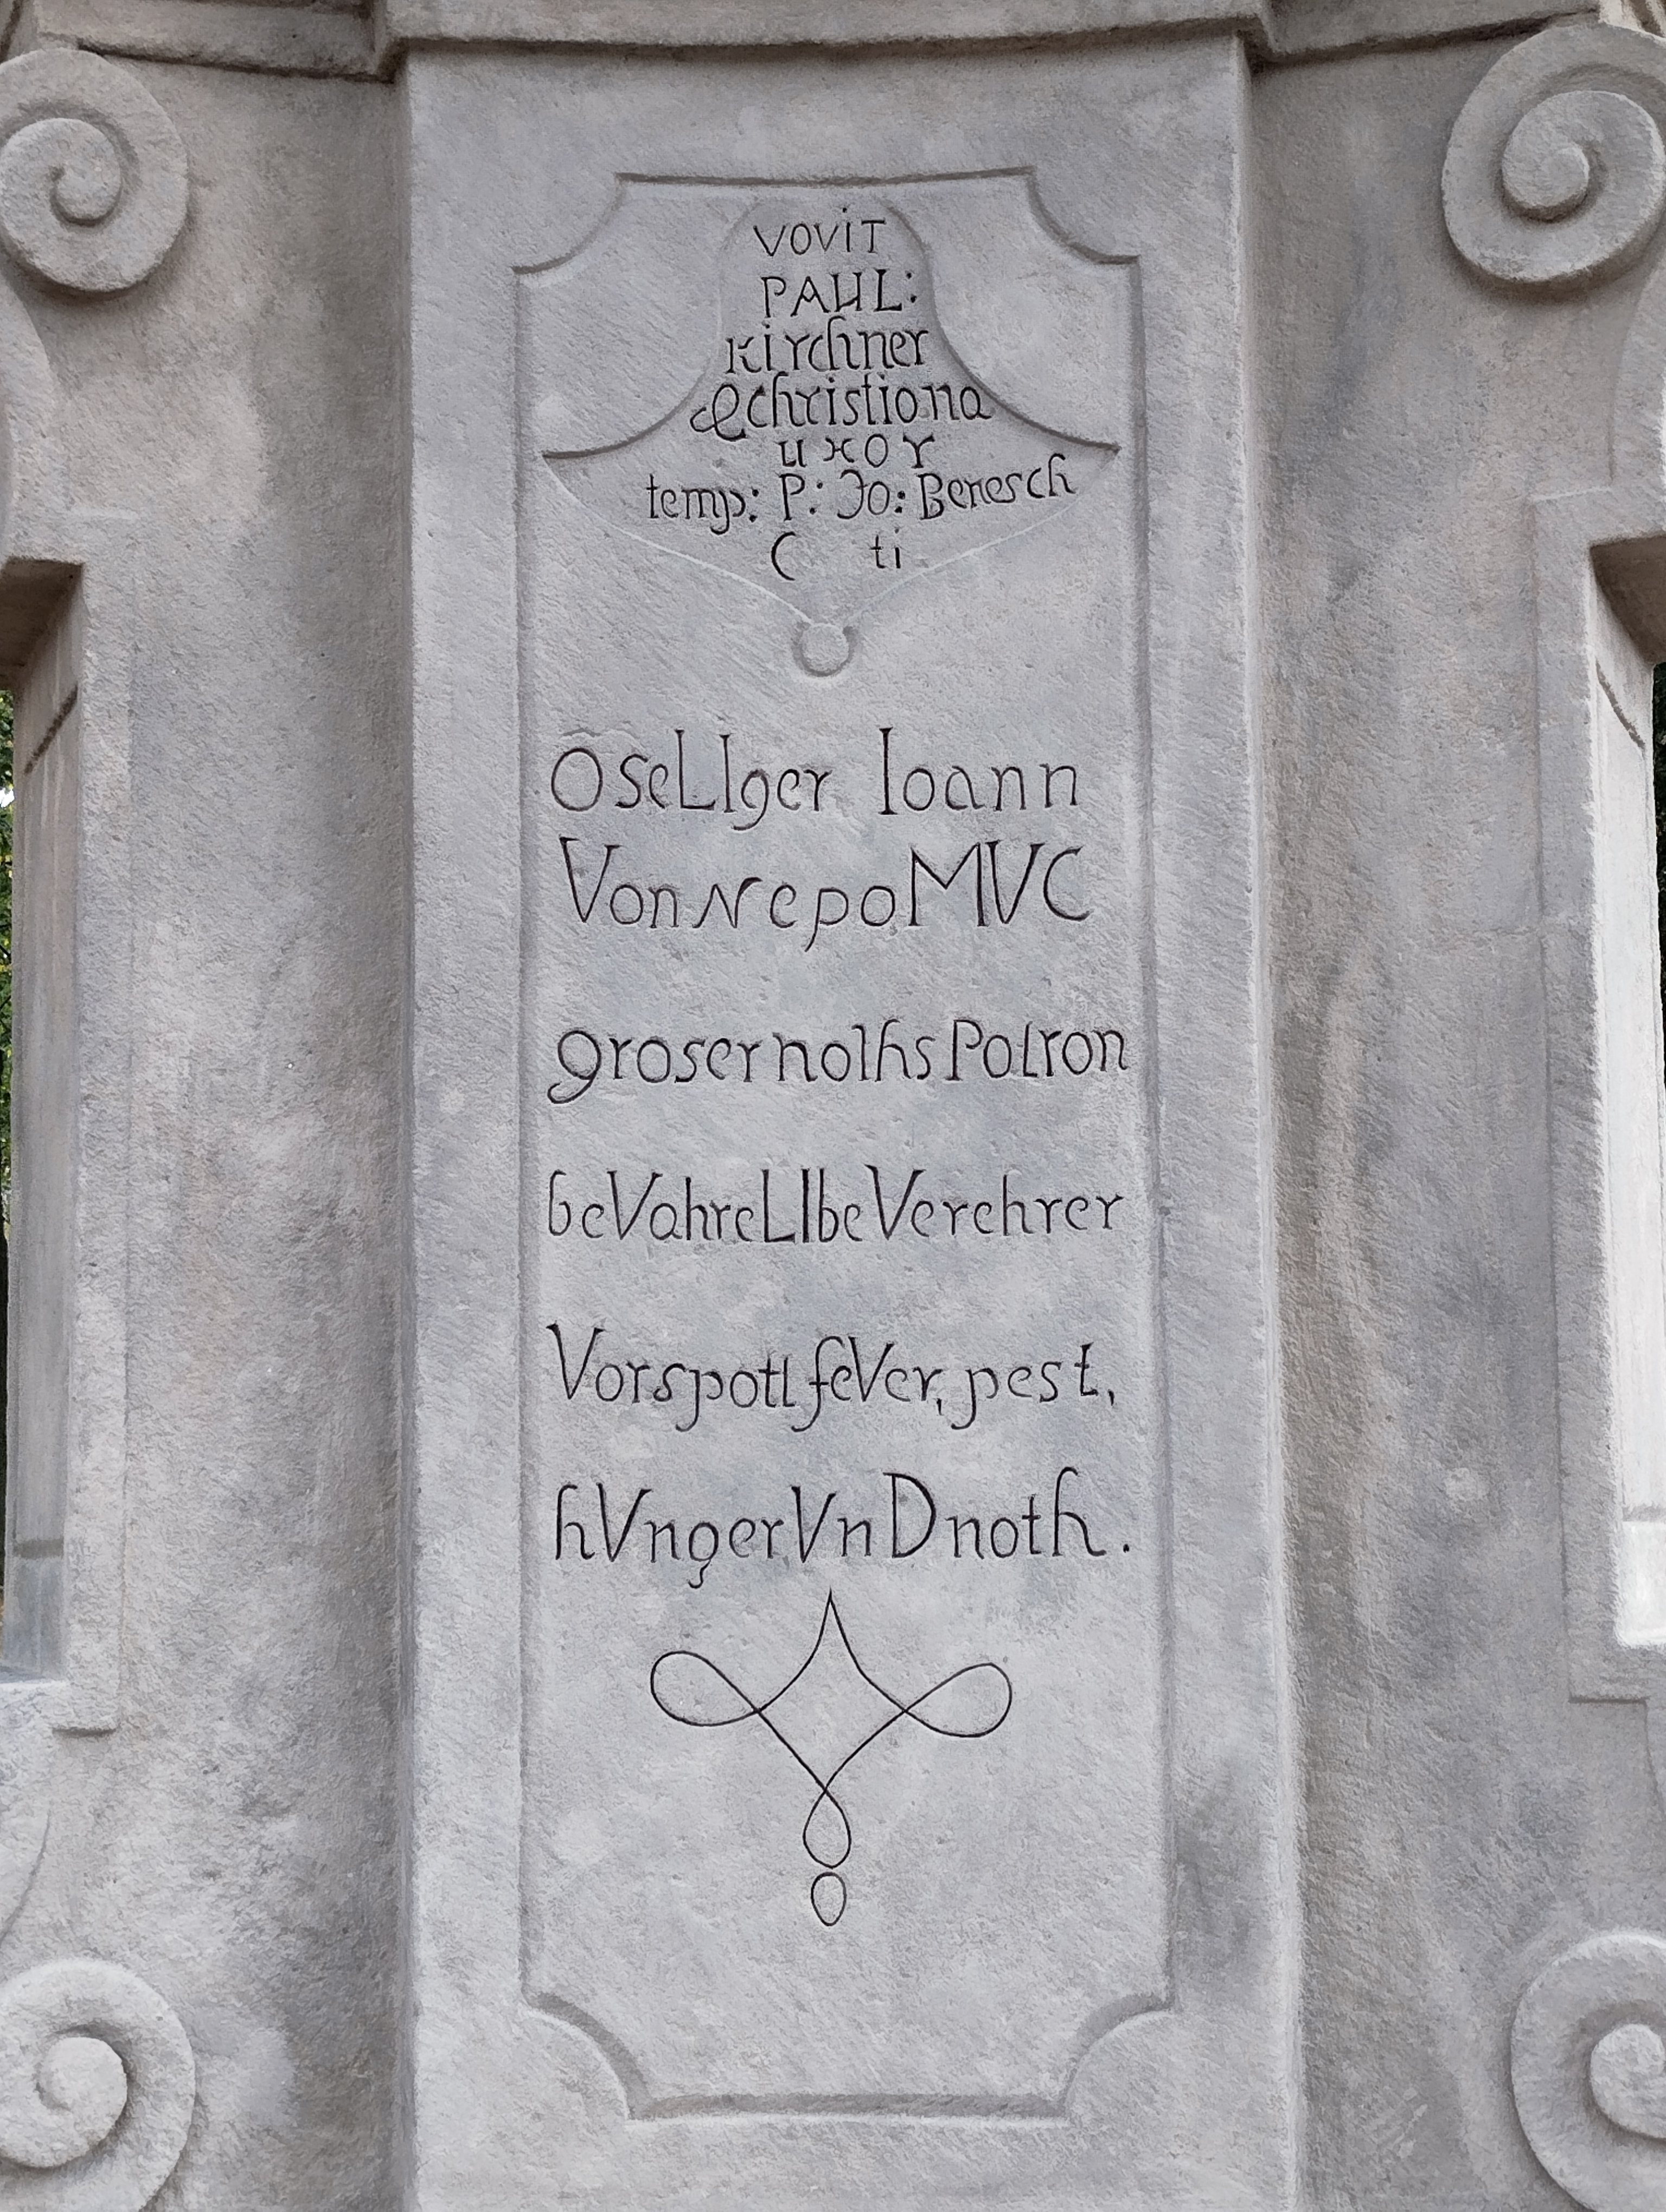 VOViT
PAUL:
Kirchner
& christiana
uxor
temp: P: Jo: Benesch
C ti
O seLIger Ioann
Von NepoMVC
groser nolhs Polron
beVahre LIbe Verehrer
Vor spotl feVer, pest,
hVnger VnD noth.